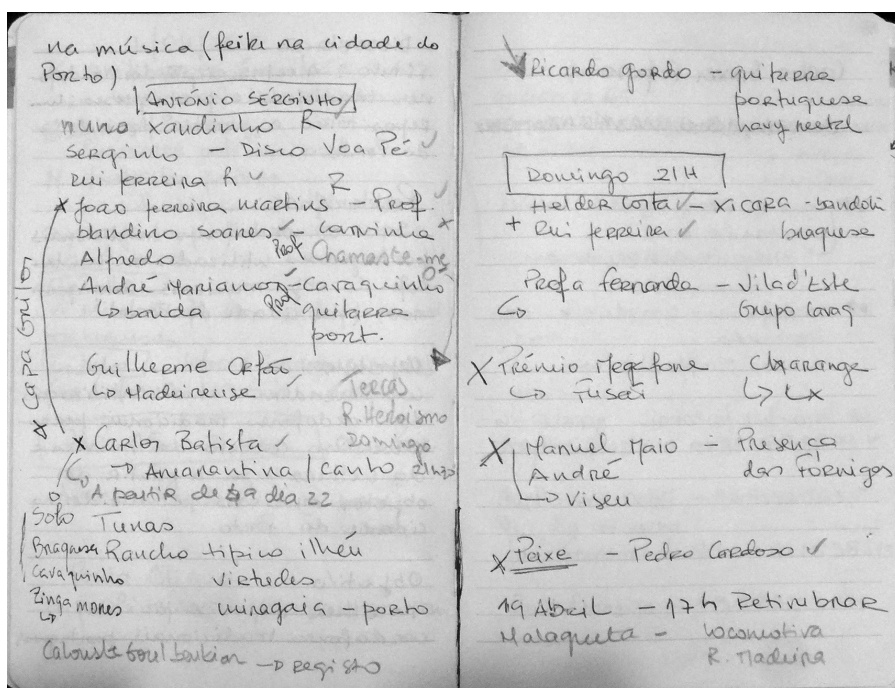 na música (feita na cidade do
Porto)
ANTÓNIO SÉRGINHO
nuno xandinho R
serginho – Disco Voa Pé ✓
Rui ferreira R ✓
x João ferreira martins – Prof.
blandino soares ✓ – carvinho x
Alfredo Prof Chamaste-me
André Marianon – Cavaquinho
↳ banda Prof guitarra
port.
* Capa Grilos
Guilherme Orfão
↳ Madeirense
Terças
R. Heroísmo
Domingo
21h30
x Carlos Batista ✓
↳ Amarantina / canto
A partir de dia 22
Solo Tunas
Braguesa Rancho típico ilhéu
Cavaquinho virtudes
Zingamones miragaia – porto
Calouste Goulbenkian → registo
Ricardo gordo – guitarra
portuguese
havy meetal
Domingo 21H
Helder Costa ✓ – XICARA – bandoli
+ Rui ferreira ✓ braguesa
Profa fernanda – Vila d'Este
↳ Grupo Cavaq
X Prémio Megafone Charanga
↳ Fusão ↳ Lx
X Manuel Maio – Presença
André das Formigas
↳ Viseu
X Peixe – Pedro Cardoso ✓
19 Abril – 17h Retimbrar
Malaqueta – locomotiva
R. Madeira